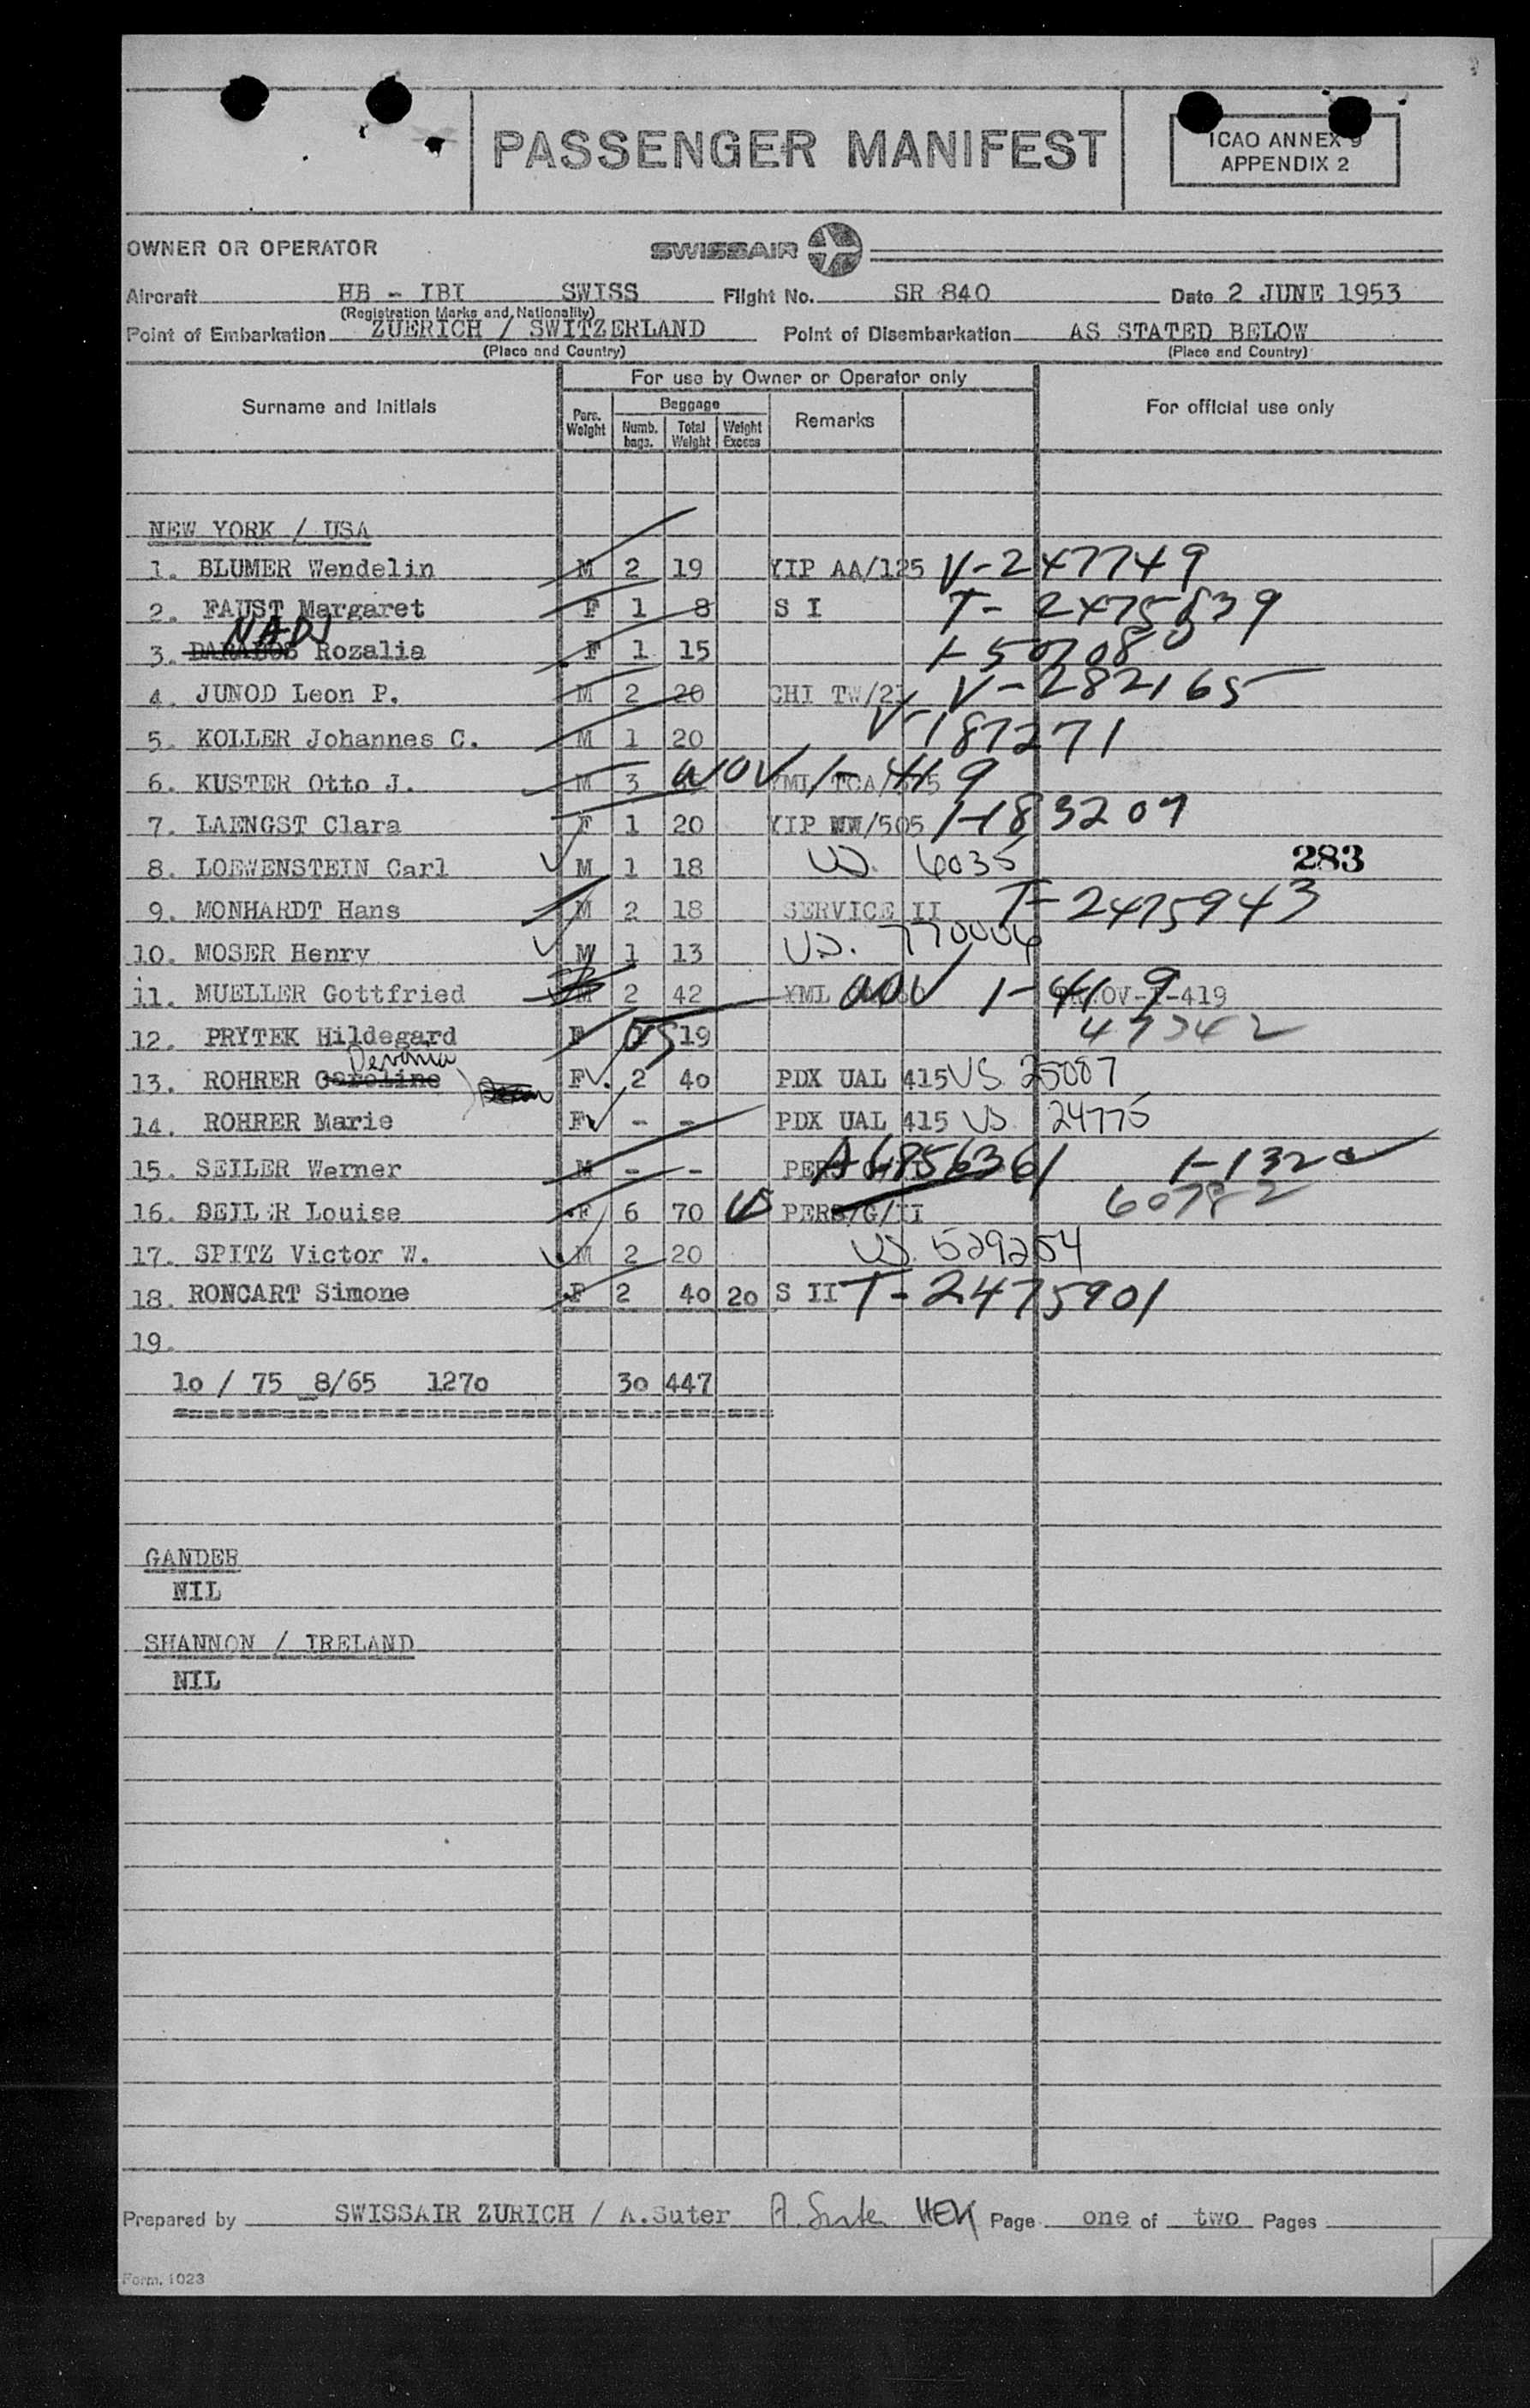 PASSENGER MANIFEST
ICAO ANNEX 9
APPENDIX 2
OWNER OR OPERATOR SWISSAIR
Aircraft HB - IBI SWISS Flight No. SR 840 Date 2 JUNE 1953
(Registration Marks and Nationality)
Point of Embarkation ZUERICH / SWITZERLAND Point of Disembarkation AS STATED BELOW
(Place and Country) (Place and Country)
For use by Owner or Operator only
Surname and Initials Pers. Weight Baggage Numb. bags. Total Weight Weight Excess Remarks For official use only
NEW YORK / USA
1. BLUMER Wendelin M 2 19 YIP AA/125 V-247749
2. FAUST Margaret F 1 8 S I T-2475839
NADJ
3. Rozalia F 1 15
4. JUNOD Leon P. M 2 20 CHI TW/21 V-282165
5. KOLLER Johannes C. M 1 20 V-187271
6. KUSTER Otto J. M 3 YML TCA/ 1-419
7. LAENGST Clara F 1 20 YIP NW/505 1-183209
8. LOEWENSTEIN Carl M 1 18 US. 6035
283
9. MONHARDT Hans M 2 18 SERVICE II T-2475943
10. MOSER Henry M 1 13 US. 770006
11. MUELLER Gottfried M 2 42 YML 1-419
12. PRYTEK Hildegard F 19 US 47342
13. ROHRER Caroline F 2 40 PDX UAL 415 US 25087
14. ROHRER Marie F - - PDX UAL 415 US 24775
15. SEILER Werner M - - A6856361 1-132
16. SEILER Louise F 6 70 US PERS/G/II 60782
17. SPITZ Victor W. M 2 20 US. 529254
18. RONCART Simone F 2 40 20 S II T-2475901
19.
10 / 75 8/65 1270 30 447
GANDER
NIL
SHANNON / IRELAND
NIL
Prepared by SWISSAIR ZURICH / A.Suter A. Suter Page one of two Pages
Form. 1023